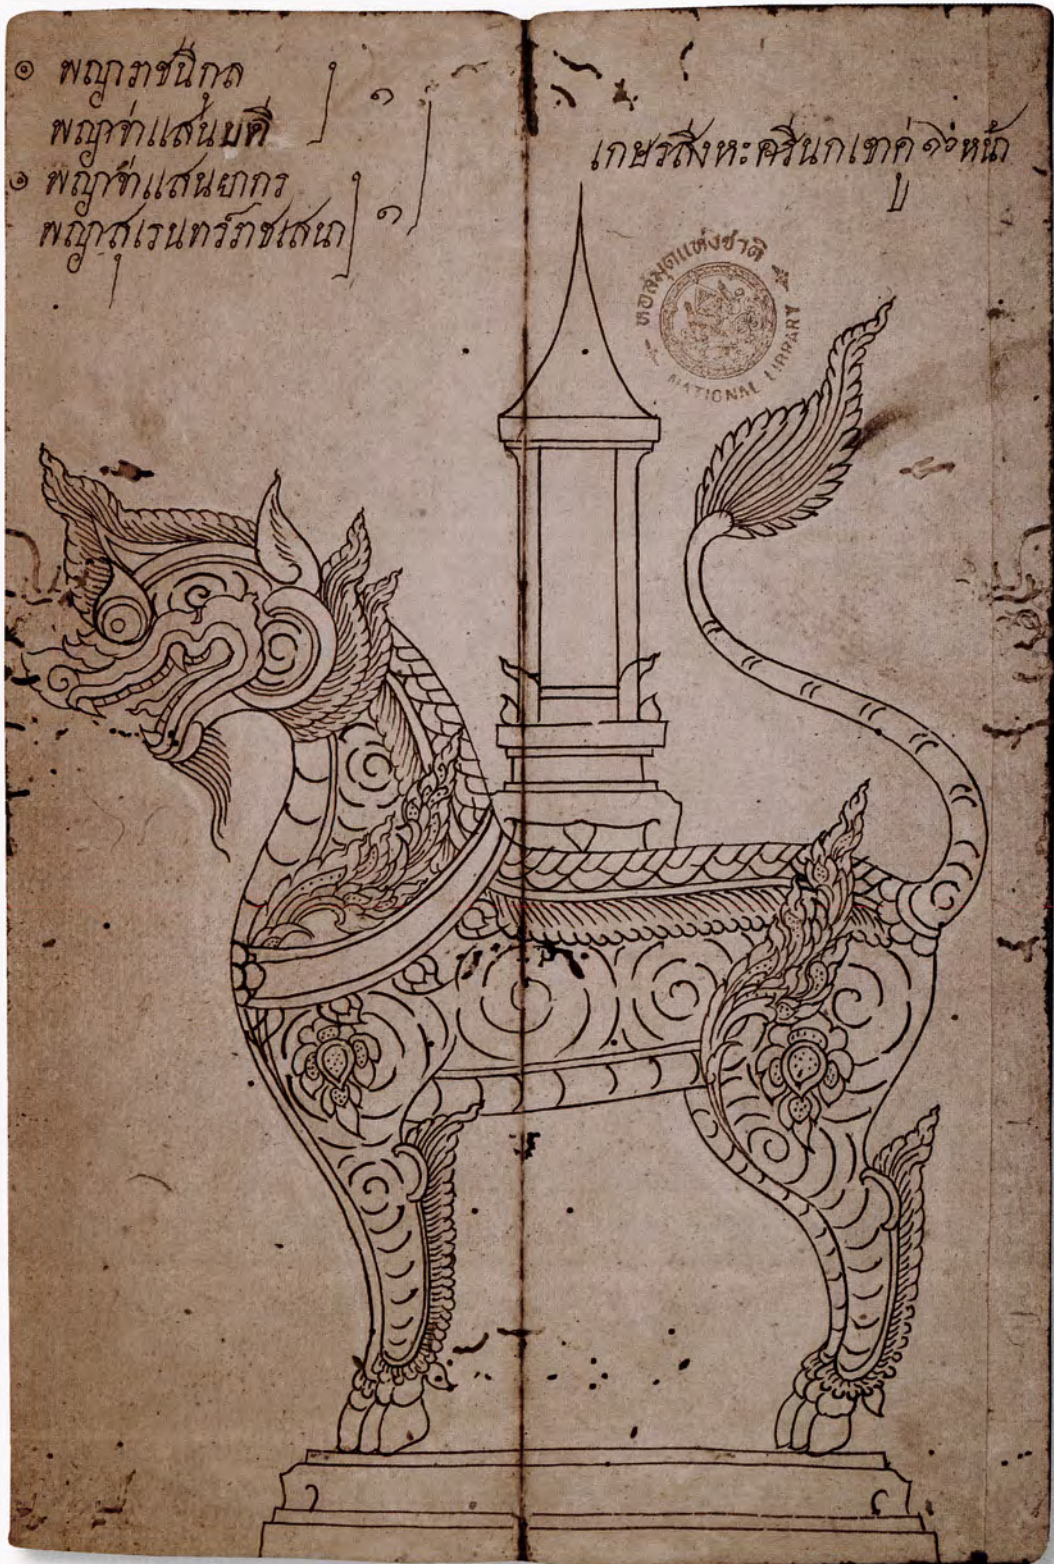 ๏ พญาราชนิกุล ] ๑ ]
พญาจ่าแสนบดี
๏ พญาจ่าแสนยากร ] ๑
พญาสุเรนทร์ราชเสนา
เกษรสิงหะครีนกเทาคู่ ๑๐ หน้า
หอสมุดแห่งชาติ
NATIONAL LIBRARY